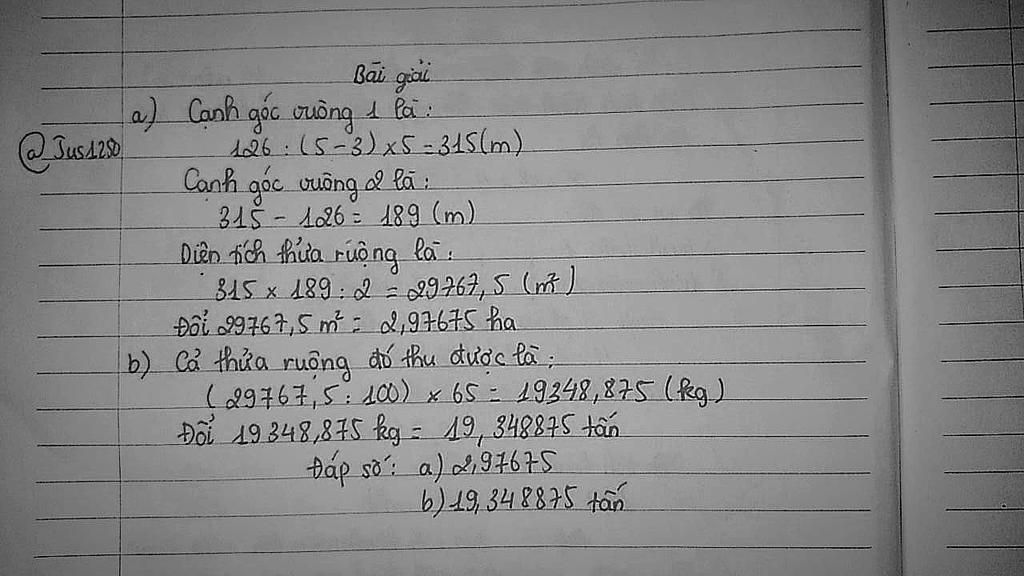 Bài giải
a) Cạnh góc vuông 1 là:
@Jus1250
126 : (5-3) × 5 = 315 (m)
Cạnh góc vuông 2 là:
315 - 126 = 189 (m)
Diện tích thửa ruộng là:
315 × 189 : 2 = 29767,5 (m²)
Đổi 29767,5 m² = 2,97675 ha
b) Cả thửa ruộng đó thu được là:
(29767,5 : 100) × 65 = 19348,875 (kg)
Đổi 19348,875 kg = 19,348875 tấn
Đáp số: a) 2,97675
b) 19,348875 tấn